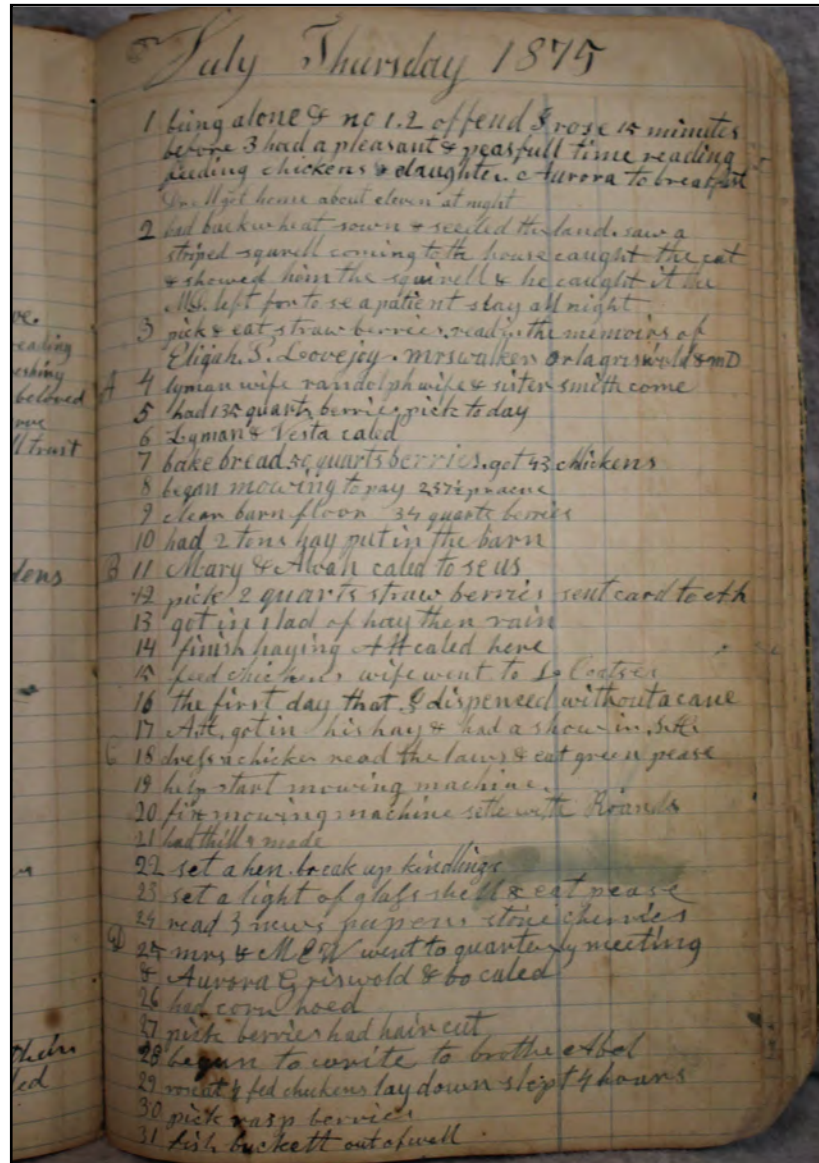 July Thursday 1875
1 being alone & no 1.2 offend I rose 15 minutes
before 3 had a pleasant & peasfull time reading
feeding chickens & daughter. Aurora to breakfast
Dr. M get home about eleven at night
2 had buckwheat sown & seeded the land. saw a
striped squrell coming to th house caught the cat
& showed him the squirell & he caught it the
M.D. left for to se a patient stay all night
3 pick & eat straw berries. read in the memoirs of
Eligah. P. Lovejoy. mrs walker Orla griswold & mD
A 4 lyman wife randolph wife & sister smith come
5 had 135 quarts berries pick to day
6 Lyman & Vesta caled
7 bake bread 50 quarts berries. got 43 chickens
8 began mowing to pay 2 37½
9 clean barn floor 34 quarts berries
10 had 2 tons hay put in the barn
B 11 Mary & Alvah caled to se us
12 pick 2 quarts straw berries sent card to
13 got in 1 lad of hay then rain
14 finish haying caled here
15 feed chickens wife went to
16 the first day that I dispenced without a cane
17 got in his hay & had a show in
C 18 dress a chicken read the laws & eat green pease
19 help start mowing machine.
20 fix mowing machine setle with
21 had thills made
22 set a hen. break up kindlings
23 set a light of glass shell & eat pease
24 read 3 news papers stone cherries
D 25 mrs & M E W went to quarterly meeting
& Aurora Griswold & bo caled
26 had corn hoed
27 pick berries had hair cut
28 begun to write to brothe Abel
29 rose at 4 fed chickens lay down slept 4 hours
30 pick rasp berries
31 fish buckett out of well
ve.
eading
beloved
trust
dens
led